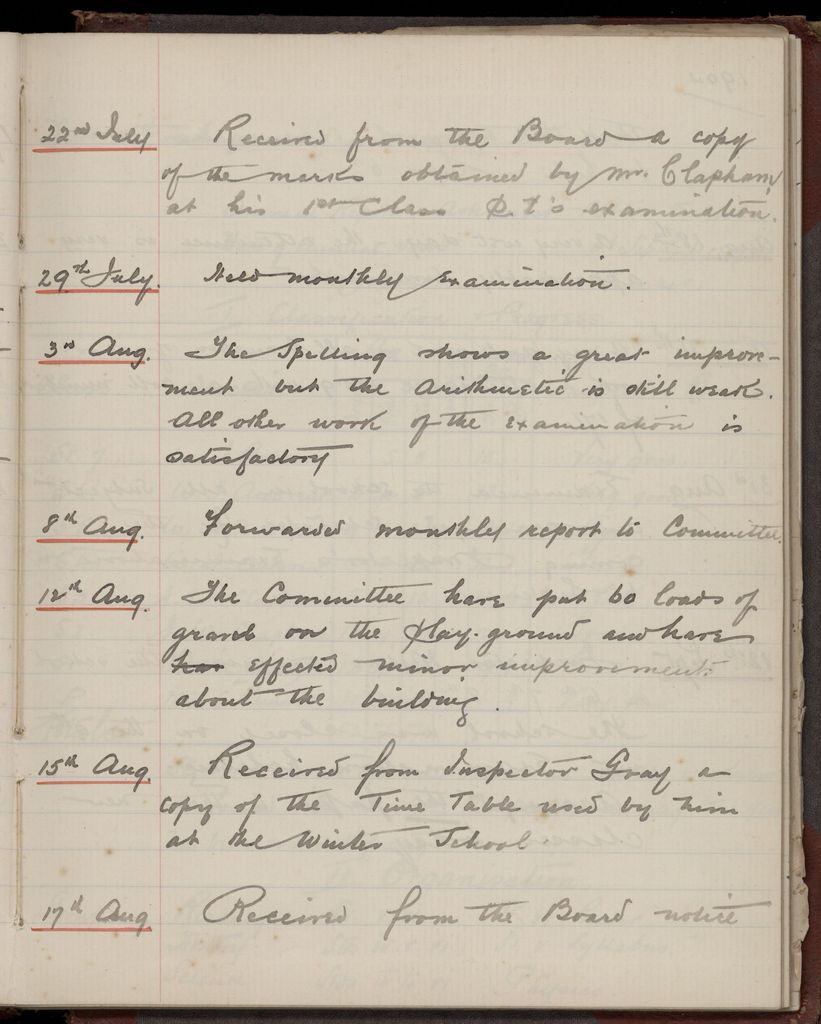 22nd July Received from the Board a copy
of the marks obtained by Mr. Clapham,
at his 1st Class P.T's examination.
29th July. Held monthly examination.
3rd Aug. The Spelling shows a great improve-
ment but the Arithmetic is still weak.
All other work of the examination is
satisfactory
8th Aug. Forwarded monthly report to Committee.
12th Aug. The Committee have put 60 loads of
gravel on the play-ground and have
has effected minor improvements
about the building.
15th Aug Received from Inspector Gray a
copy of the Time Table used by him
at the Winter School.
17th Aug Received from the Board notice